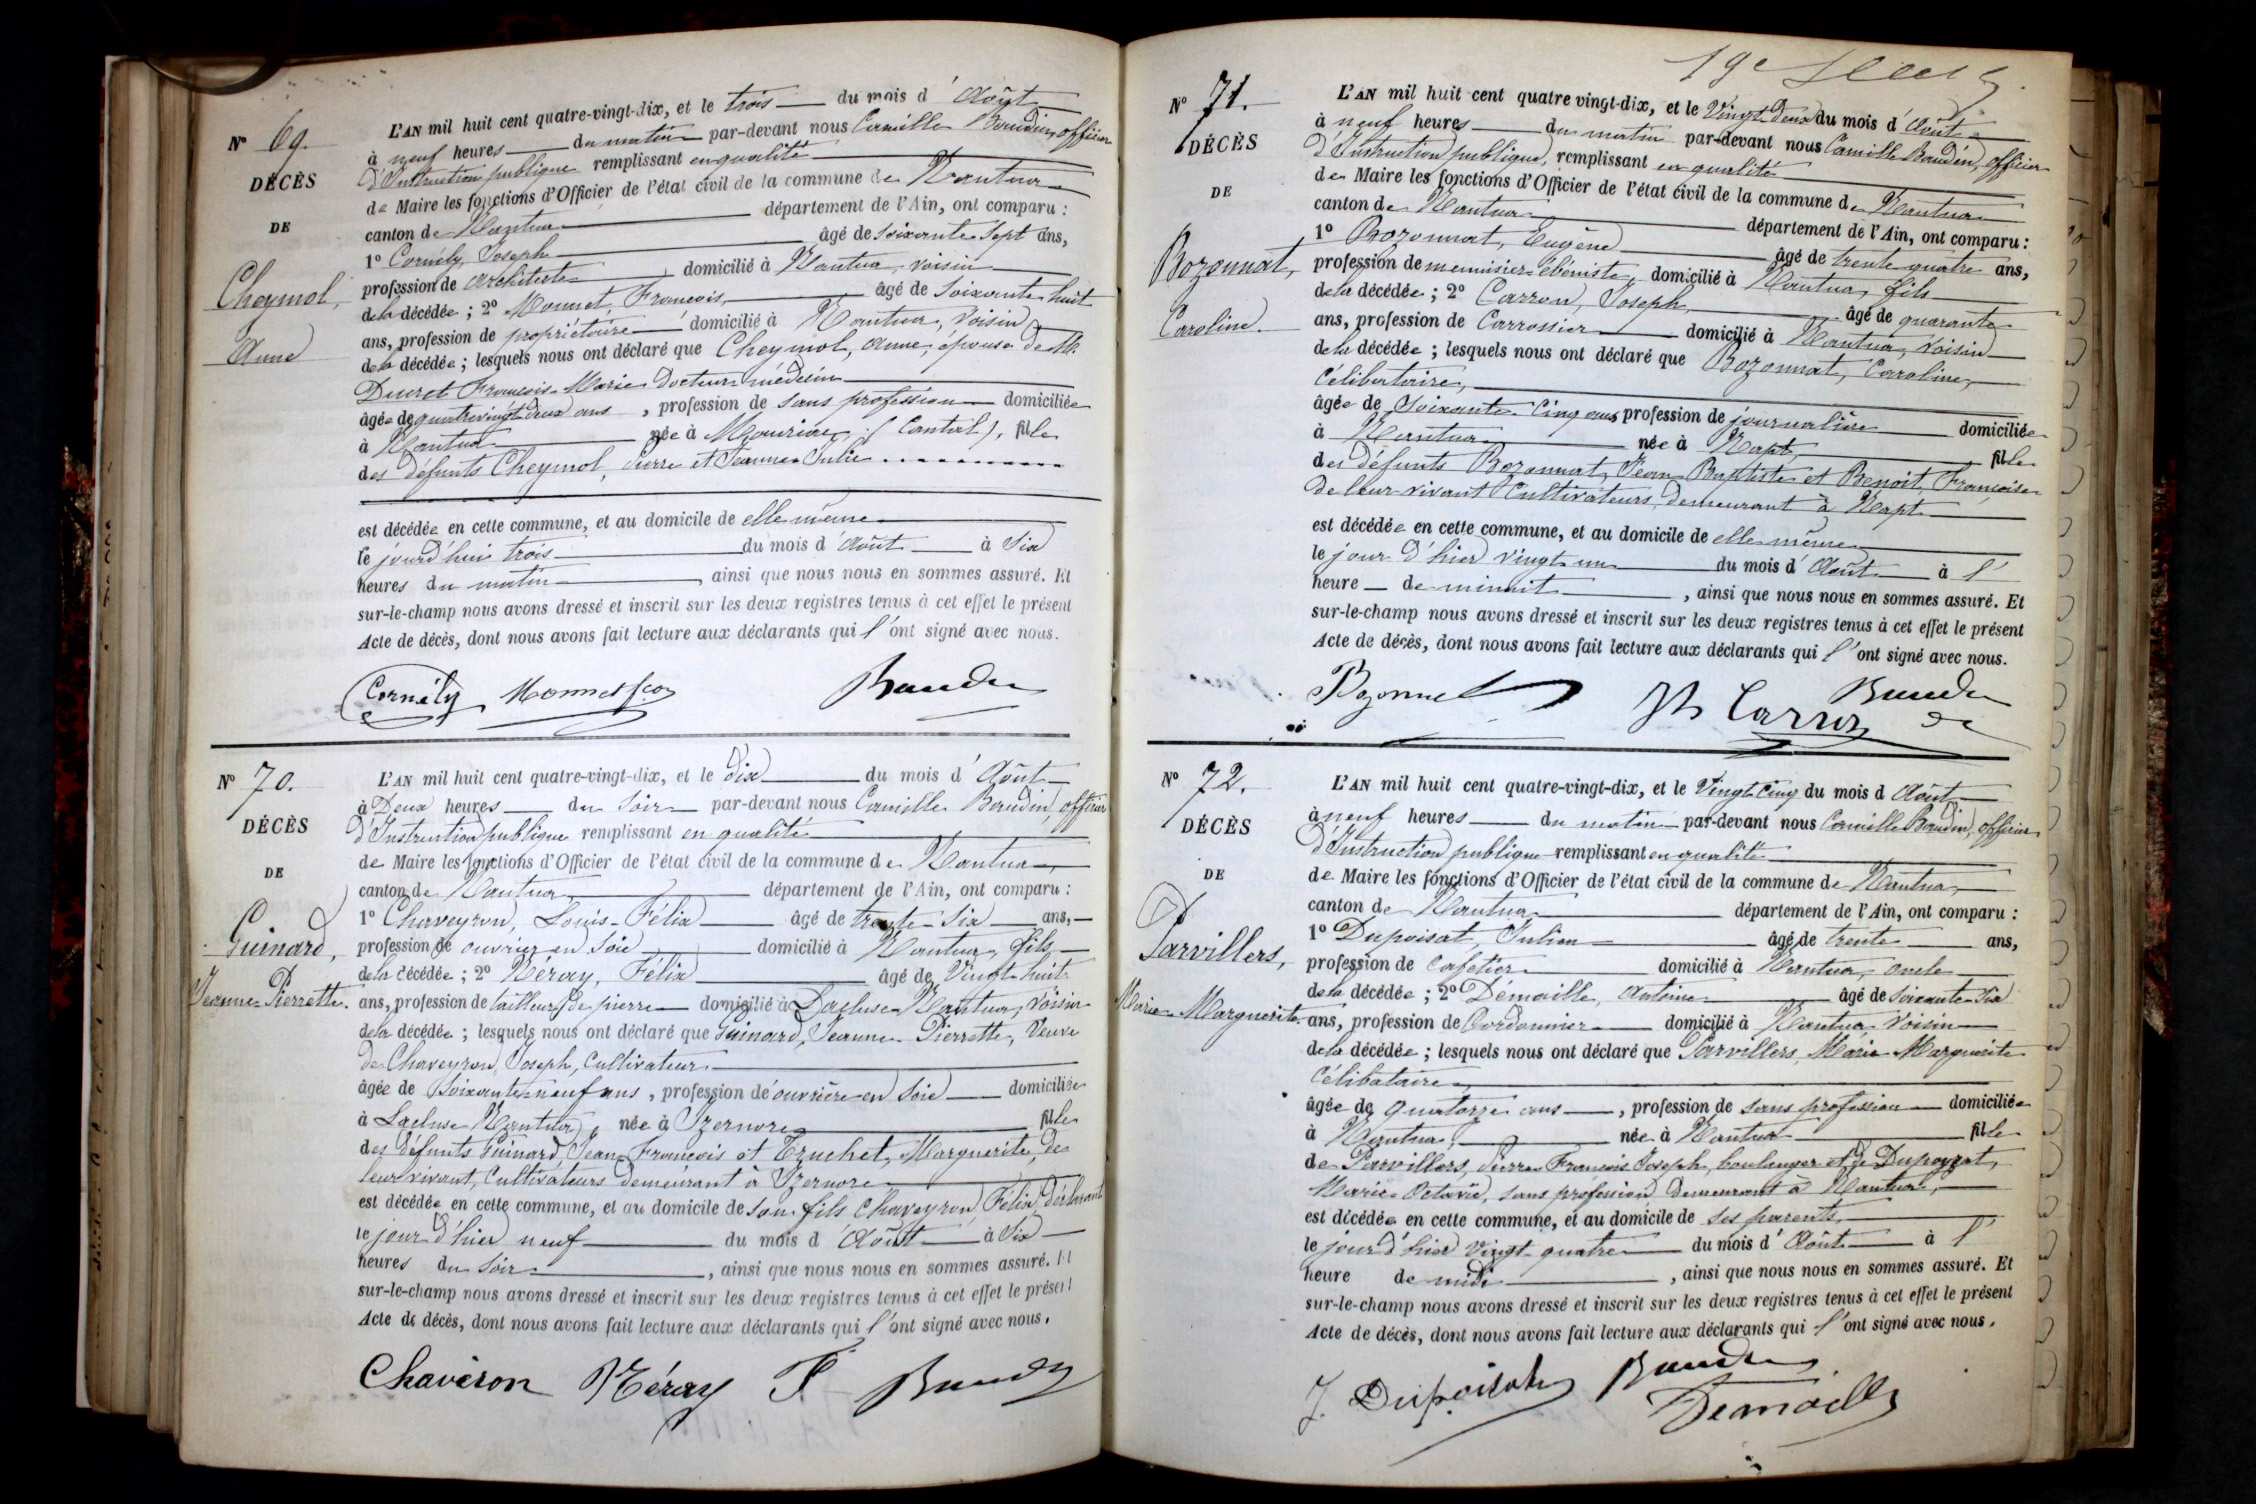 N° 69.
DÉCÈS
DE
Cheymol,
Anne
L'AN mil huit cent quatre-vingt-dix, et le trois du mois d'Août
à neuf heures du matin par-devant nous Camille Baudin, officier
d'Instruction publique remplissant en qualité
de Maire les fonctions d'Officier de l'état civil de la commune de Nantua
canton de Nantua département de l'Ain, ont comparu :
1° Cornély, Joseph âgé de soixante sept ans,
profession de architecte domicilié à Nantua, voisin
de la décédée ; 2° Monnet, François, âgé de soixante huit
ans, profession de propriétaire domicilié à Nantua, voisin
de la décédée ; lesquels nous ont déclaré que Cheymol, Anne, épouse de M.
Ducret François-Marie docteur médecin
âgée de quatre vingt deux ans, profession de sans profession domiciliée
à Nantua née à Mauriac, (Cantal), fille
des défunts Cheymol, Pierre et Jeanne Julie
est décédée en cette commune, et au domicile de elle même
le jourd'hui trois du mois d'Août à six
heures du matin, ainsi que nous nous en sommes assuré. Et
sur-le-champ nous avons dressé et inscrit sur les deux registres tenus à cet effet le présent
Acte de décès, dont nous avons fait lecture aux déclarants qui l'ont signé avec nous.
Cornély Monnet fçois Baudin
N° 70.
DÉCÈS
DE
Guinard,
Jeanne-Pierrette.
L'AN mil huit cent quatre-vingt-dix, et le dix du mois d'Août
à Deux heures du soir par-devant nous Camille Baudin, officier
d'Instruction publique remplissant en qualité
de Maire les fonctions d'Officier de l'état civil de la commune de Nantua,
canton de Nantua département de l'Ain, ont comparu :
1° Chaveyron, Louis-Félix âgé de trente-six ans,
profession de ouvrier en soie domicilié à Nantua, fils
de la décédée ; 2° Néray, Félix âgé de vingt huit
ans, profession de tailleur de pierre domicilié à Lacluse-Nantua, voisin
de la décédée ; lesquels nous ont déclaré que Guinard, Jeanne-Pierrette, veuve
de Chaveyron, Joseph, cultivateur
âgée de soixante-neuf ans, profession d'ouvrière en soie domiciliée
à Lacluse Nantua, née à Izernore fille
des défunts Guinard, Jean François et Truchet, Marguerite, de
leur vivant, cultivateurs demeurant à Izernore
est décédée en cette commune, et au domicile de son fils Chaveyron, Félix, déclarant
le jour d'hier neuf du mois d'Août à six
heures du soir, ainsi que nous nous en sommes assuré. Et
sur-le-champ nous avons dressé et inscrit sur les deux registres tenus à cet effet le présent
Acte de décès, dont nous avons fait lecture aux déclarants qui l'ont signé avec nous.
Chavéron Néray F Baudin
N° 71.
DÉCÈS
DE
Bozonnat,
Caroline.
L'AN mil huit cent quatre vingt-dix, et le vingt deux du mois d'Août
à neuf heures du matin par-devant nous Camille Baudin, officier
d'Instruction publique, remplissant en qualité
de Maire les fonctions d'Officier de l'état civil de la commune de Nantua
canton de Nantua département de l'Ain, ont comparu :
1° Bozonnat, Eugène âgé de trente quatre ans,
profession de menuisier-ébéniste, domicilié à Nantua, fils
de la décédée ; 2° Carron, Joseph, âgé de quarante
ans, profession de Carrossier domicilié à Nantua, voisin
de la décédée ; lesquels nous ont déclaré que Bozonnat, Caroline,
célibataire,
âgée de soixante-cinq ans, profession de journalière domiciliée
à Nantua née à Napt, fille
des défunts Bozonnat, Jean-Baptiste et Benoit, Françoise
de leur vivant cultivateurs, demeurant à Napt
est décédée en cette commune, et au domicile de elle même
le jour d'hier vingt un du mois d'Août à l'
heure de minuit, ainsi que nous nous en sommes assuré. Et
sur-le-champ nous avons dressé et inscrit sur les deux registres tenus à cet effet le présent
Acte de décès, dont nous avons fait lecture aux déclarants qui l'ont signé avec nous.
Bozonnat Jh Carron Baudin
N° 72.
DÉCÈS
DE
Parvillers,
Marie-Marguerite.
L'AN mil huit cent quatre-vingt-dix, et le vingt cinq du mois d Août
à neuf heures du matin par-devant nous Camille Baudin, officier
d'Instruction publique remplissant en qualité
de Maire les fonctions d'Officier de l'état civil de la commune de Nantua,
canton de Nantua département de l'Ain, ont comparu :
1° Dupoisat, Julien âgé de trente ans,
profession de cafetier domicilié à Nantua, oncle
de la décédée ; 2° Démaille, Antoine âgé de soixante-six
ans, profession de Cordonnier domicilié à Nantua voisin
de la décédée ; lesquels nous ont déclaré que Parvillers, Marie Marguerite
célibataire,
âgée de quatorze ans, profession de sans profession domiciliée
à Nantua, née à Nantua fille
de Parvillers, Pierre François Joseph, boulanger et de Dupoyzat,
Marie-Octavie, sans profession demeurant à Nantua,
est décédée en cette commune, et au domicile de ses parents,
le jour d'hier vingt-quatre du mois d'Août à l'
heure de midi, ainsi que nous nous en sommes assuré. Et
sur-le-champ nous avons dressé et inscrit sur les deux registres tenus à cet effet le présent
Acte de décès, dont nous avons fait lecture aux déclarants qui l'ont signé avec nous.
J. Dupoisat Baudin
Demaille